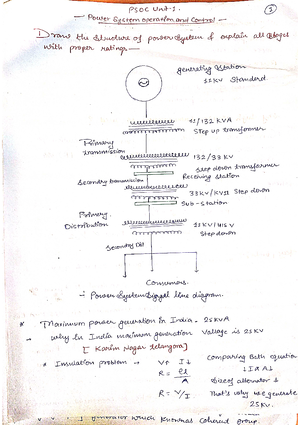 PSOC Unit-1.
1
- Power System operation and Control -
Draw the Structure of power System & explain all Stages
with proper ratings -
generating Station
11KV Standard
11/132 KVA
Step up transformer
Primary
transmission
132/33 KV
Step down transformer
Receiving station
Secondary transmission
33KV/ Step down
Sub-Station
Primary
Distribution
11KV/415 V
Step down
Secondary Dis
Consumers.
:- Power System Signal line diagram.
* Maximum power generation in India - 25KVA
- why In India maximum generation Voltage is 25KV
[ Karim Nagar Telangana]
* Insulation problem → V↑ I↓
Comparing Both equation
R = ρl/a
↓I α A↓
Size of alternator ↓
R = V/I
That's why we generate
25KV.
generator which knownas Coherent group.